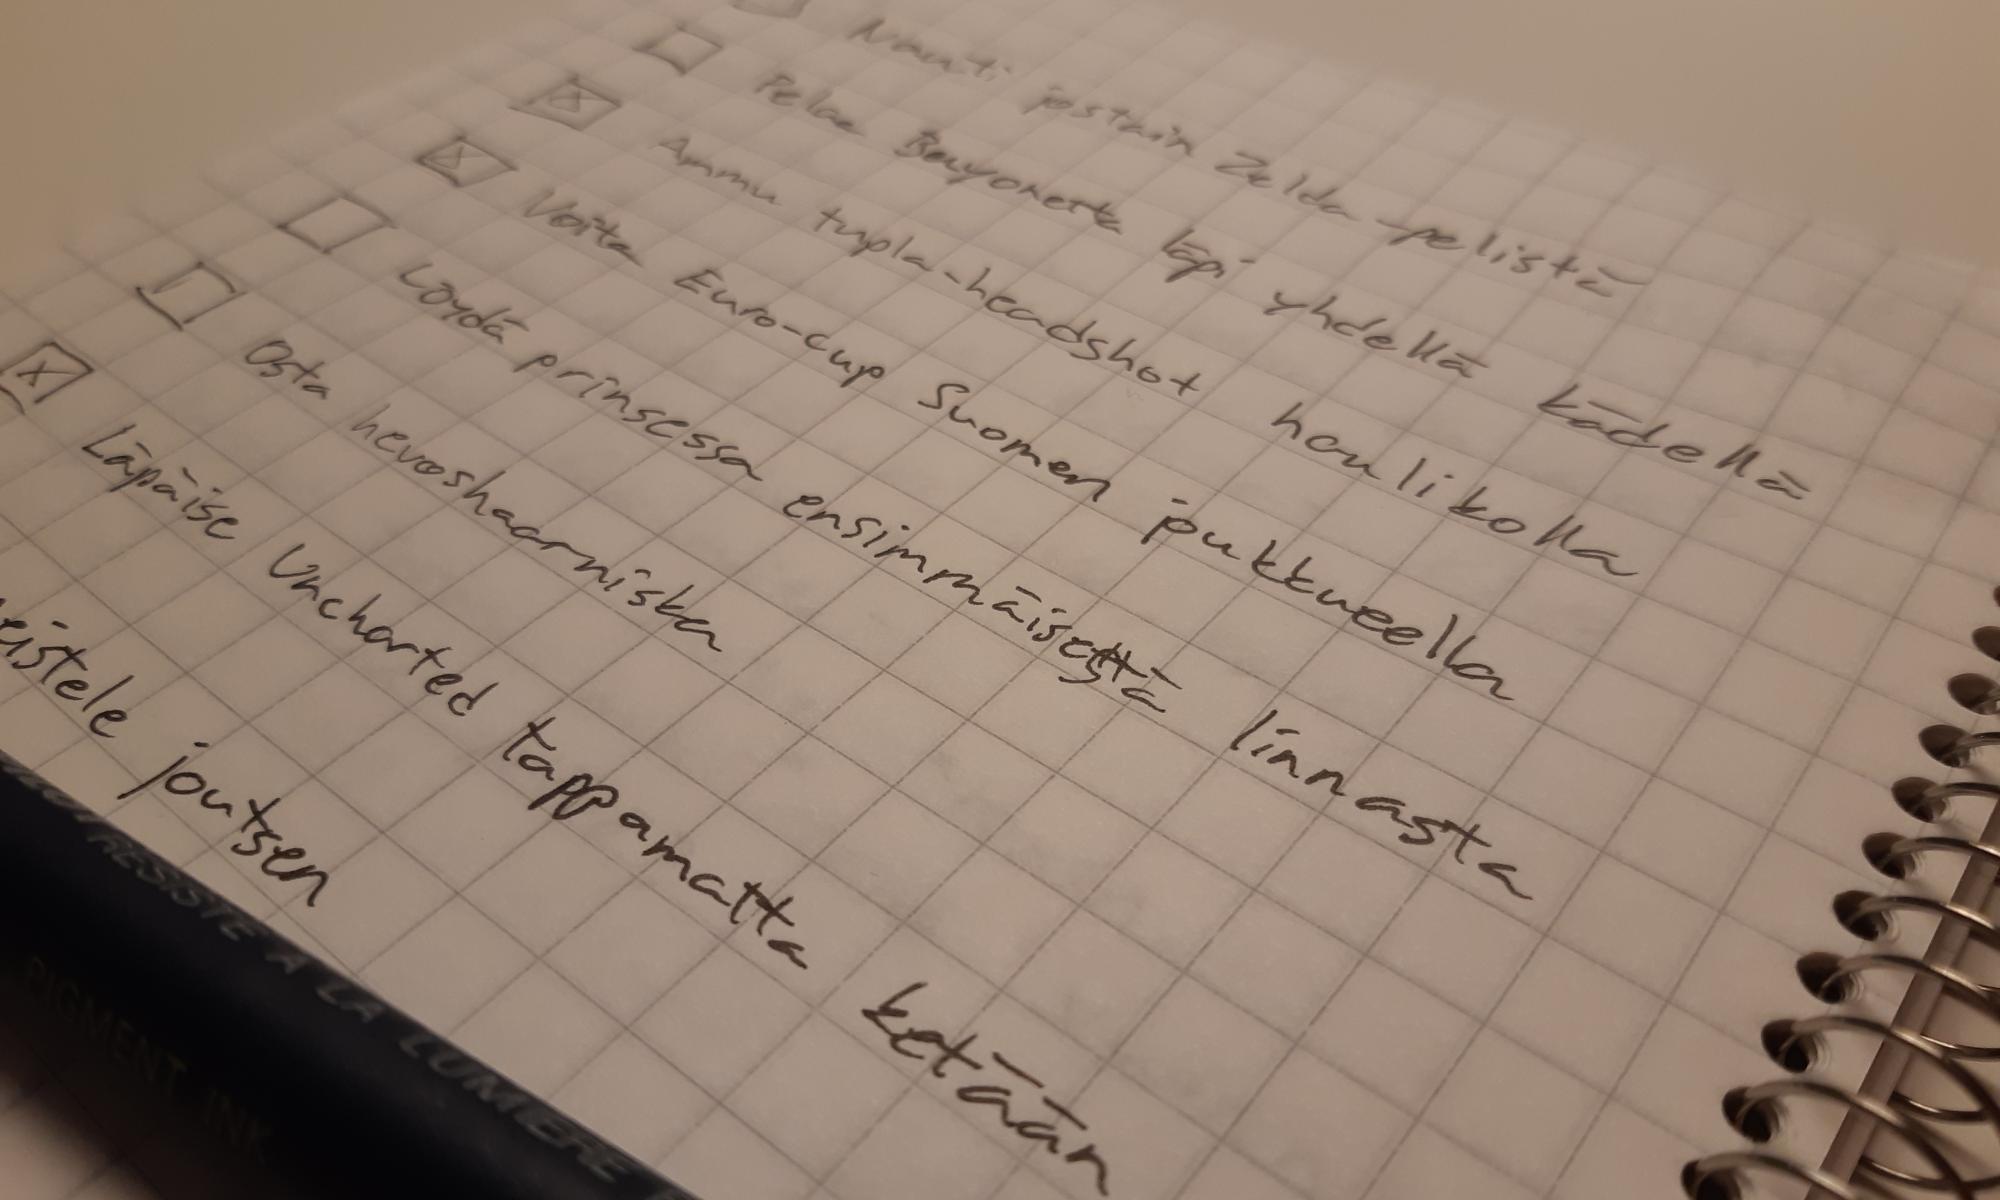 Nauti jostain Zelda-pelistä
Pelaa Bayonetta läpi yhdellä kädellä
Ammu tupla-headshot haulikolla
Voita Euro-cup Suomen joukkueella
Löydä prinsessa ensimmäisestä linnasta
Osta hevoshaarniska
Läpäise Uncharted tappamatta ketään
joutsen
RESISTE A LA LUMIERE
PIGMENT INK